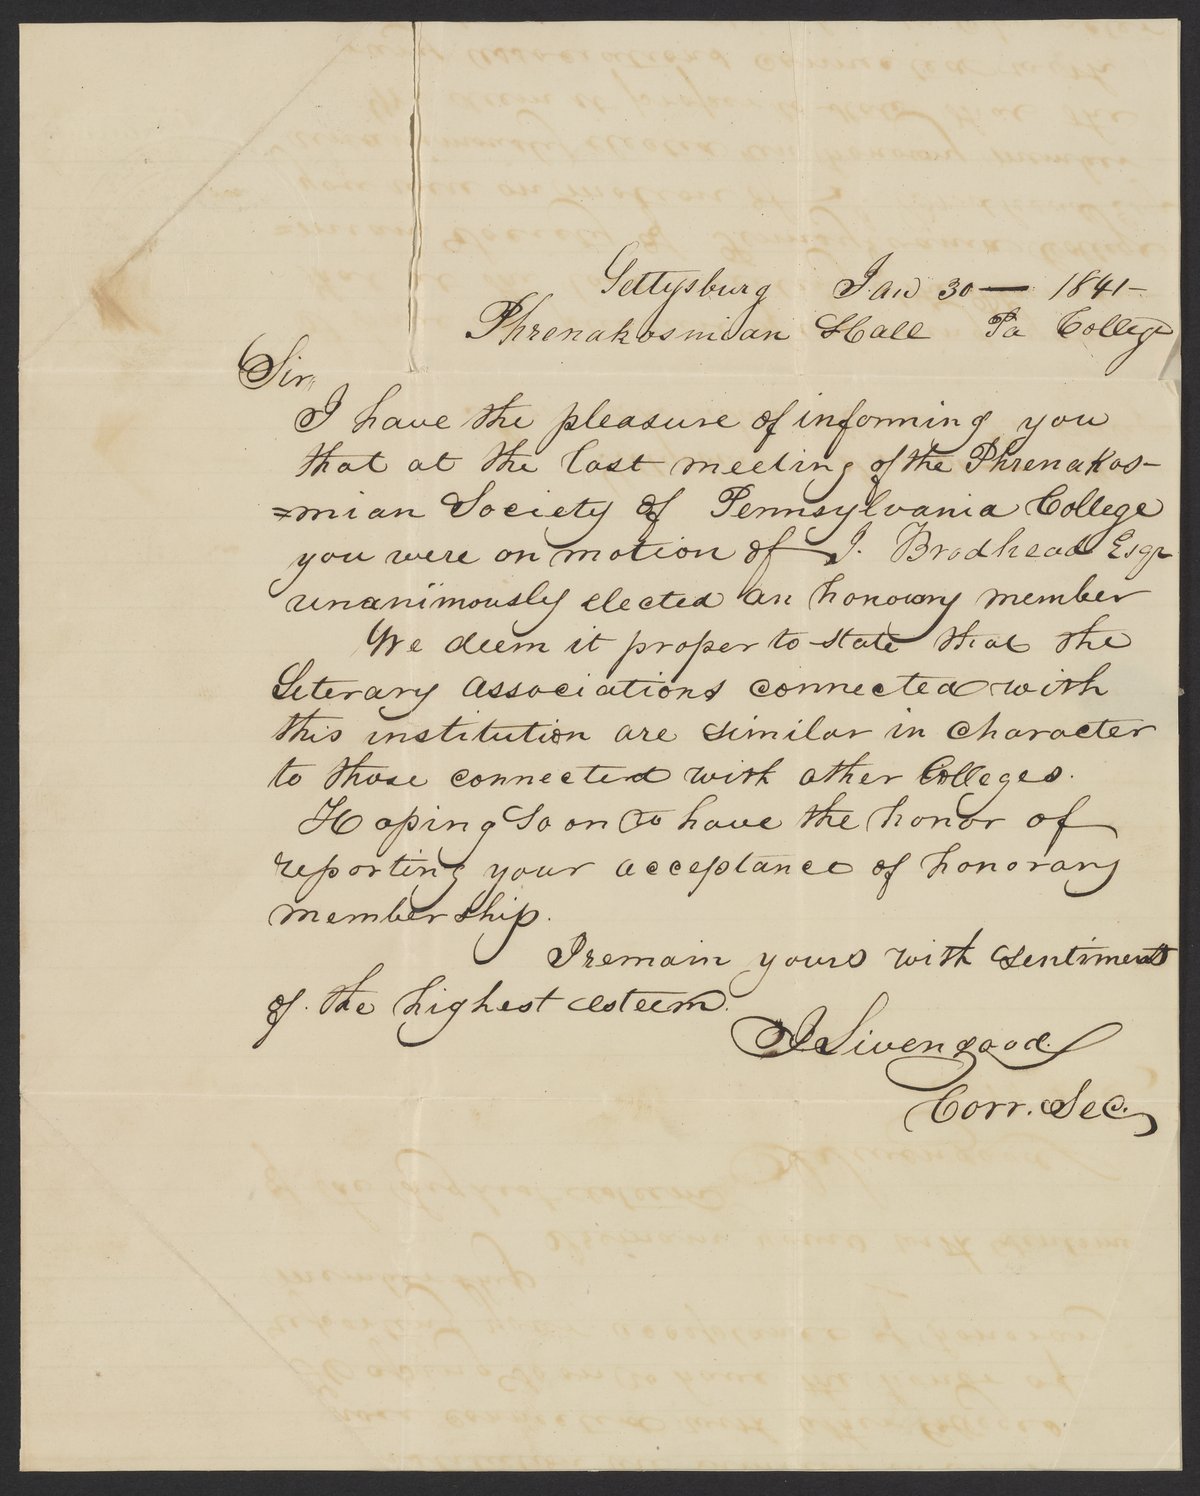 Gettysburg Jan 30 — 1841 –
Phrenakosmian Hall Pa College
Sir,
I have the pleasure of informing you
that at the last meeting of the Phrenakos-
=mian Society of Pennsylvania College
you were on motion of J. Brodhead Esqr
unanimously elected an honorary member
We deem it proper to state that the
Literary Associations connected with
this institution are similar in character
to those connected with other Colleges.
Hoping soon to have the honor of
reporting your acceptance of honorary
membership.
I remain yours with sentiments
of the highest esteem.
J Livengood.
Corr. Sec.